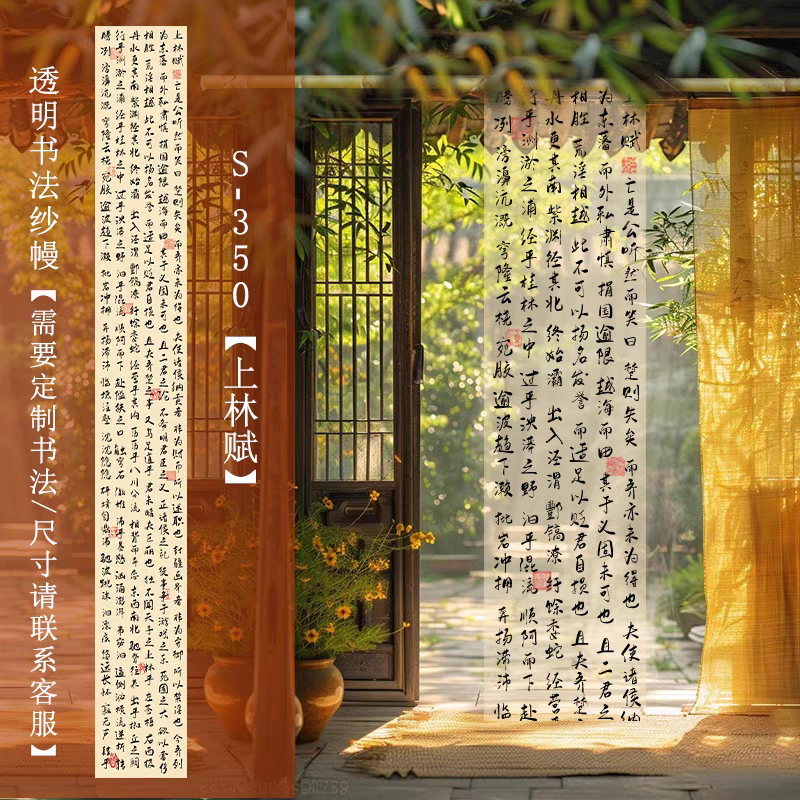 透明书法纱幔【需要定制书法/尺寸请联系客服】
上林赋 亡是公听然而笑曰 楚则失矣 而齐亦未为得也 夫使诸侯纳贡者 非为财币 所以述职也 封疆画界者 非为守御 所以禁淫也 今齐列
为东藩 而外私肃慎 捐国逾限 越海而田 其于义固未可也 且二君之论 不务明君臣之义 正诸侯之礼 徒事争于游戏之乐 苑囿之大 欲以奢侈
相胜 荒淫相越 此不可以扬名发誉 而适足以贬君自损也 且夫齐楚之事 又乌足道乎 君未睹夫巨丽也 独不闻天子之上林乎 左苍梧 右西极
丹水更其南 紫渊径其北 终始灞 出入泾渭 酆镐潦 纡馀委蛇 经营乎其内 荡荡乎八川分流 相背而异态 东西南北 驰骛往来 出乎椒丘之阙
行乎洲淤之浦 经乎桂林之中 过乎泱漭之野 汩乎混流 顺阿而下 赴隘狭之口 触穹石 激堆 沸乎暴怒 汹涌澎湃 横流逆折 转
腾冽 滂濞沆溉 穹隆云桡 宛胶 逾波趋下濑 批岩冲拥 奔扬滞沛 临坻注壑
S-350【上林赋】
上林赋 亡是公听然而笑曰 楚则失矣 而齐亦未为得也 夫使诸侯纳
为东藩 而外私肃慎 捐国逾限 越海而田 其于义固未可也 且二君之
相胜 荒淫相越 此不可以扬名发誉 而适足以贬君自损也 且夫齐楚
丹水更其南 紫渊径其北 终始灞 出入泾渭 酆镐潦 纡馀委蛇 经营
行乎洲淤之浦 经乎桂林之中 过乎泱漭之野 汩乎混流 顺阿而下 赴
腾冽 滂濞沆溉 穹隆云桡 宛胶 逾波趋下濑 批岩冲拥 奔扬滞沛 临